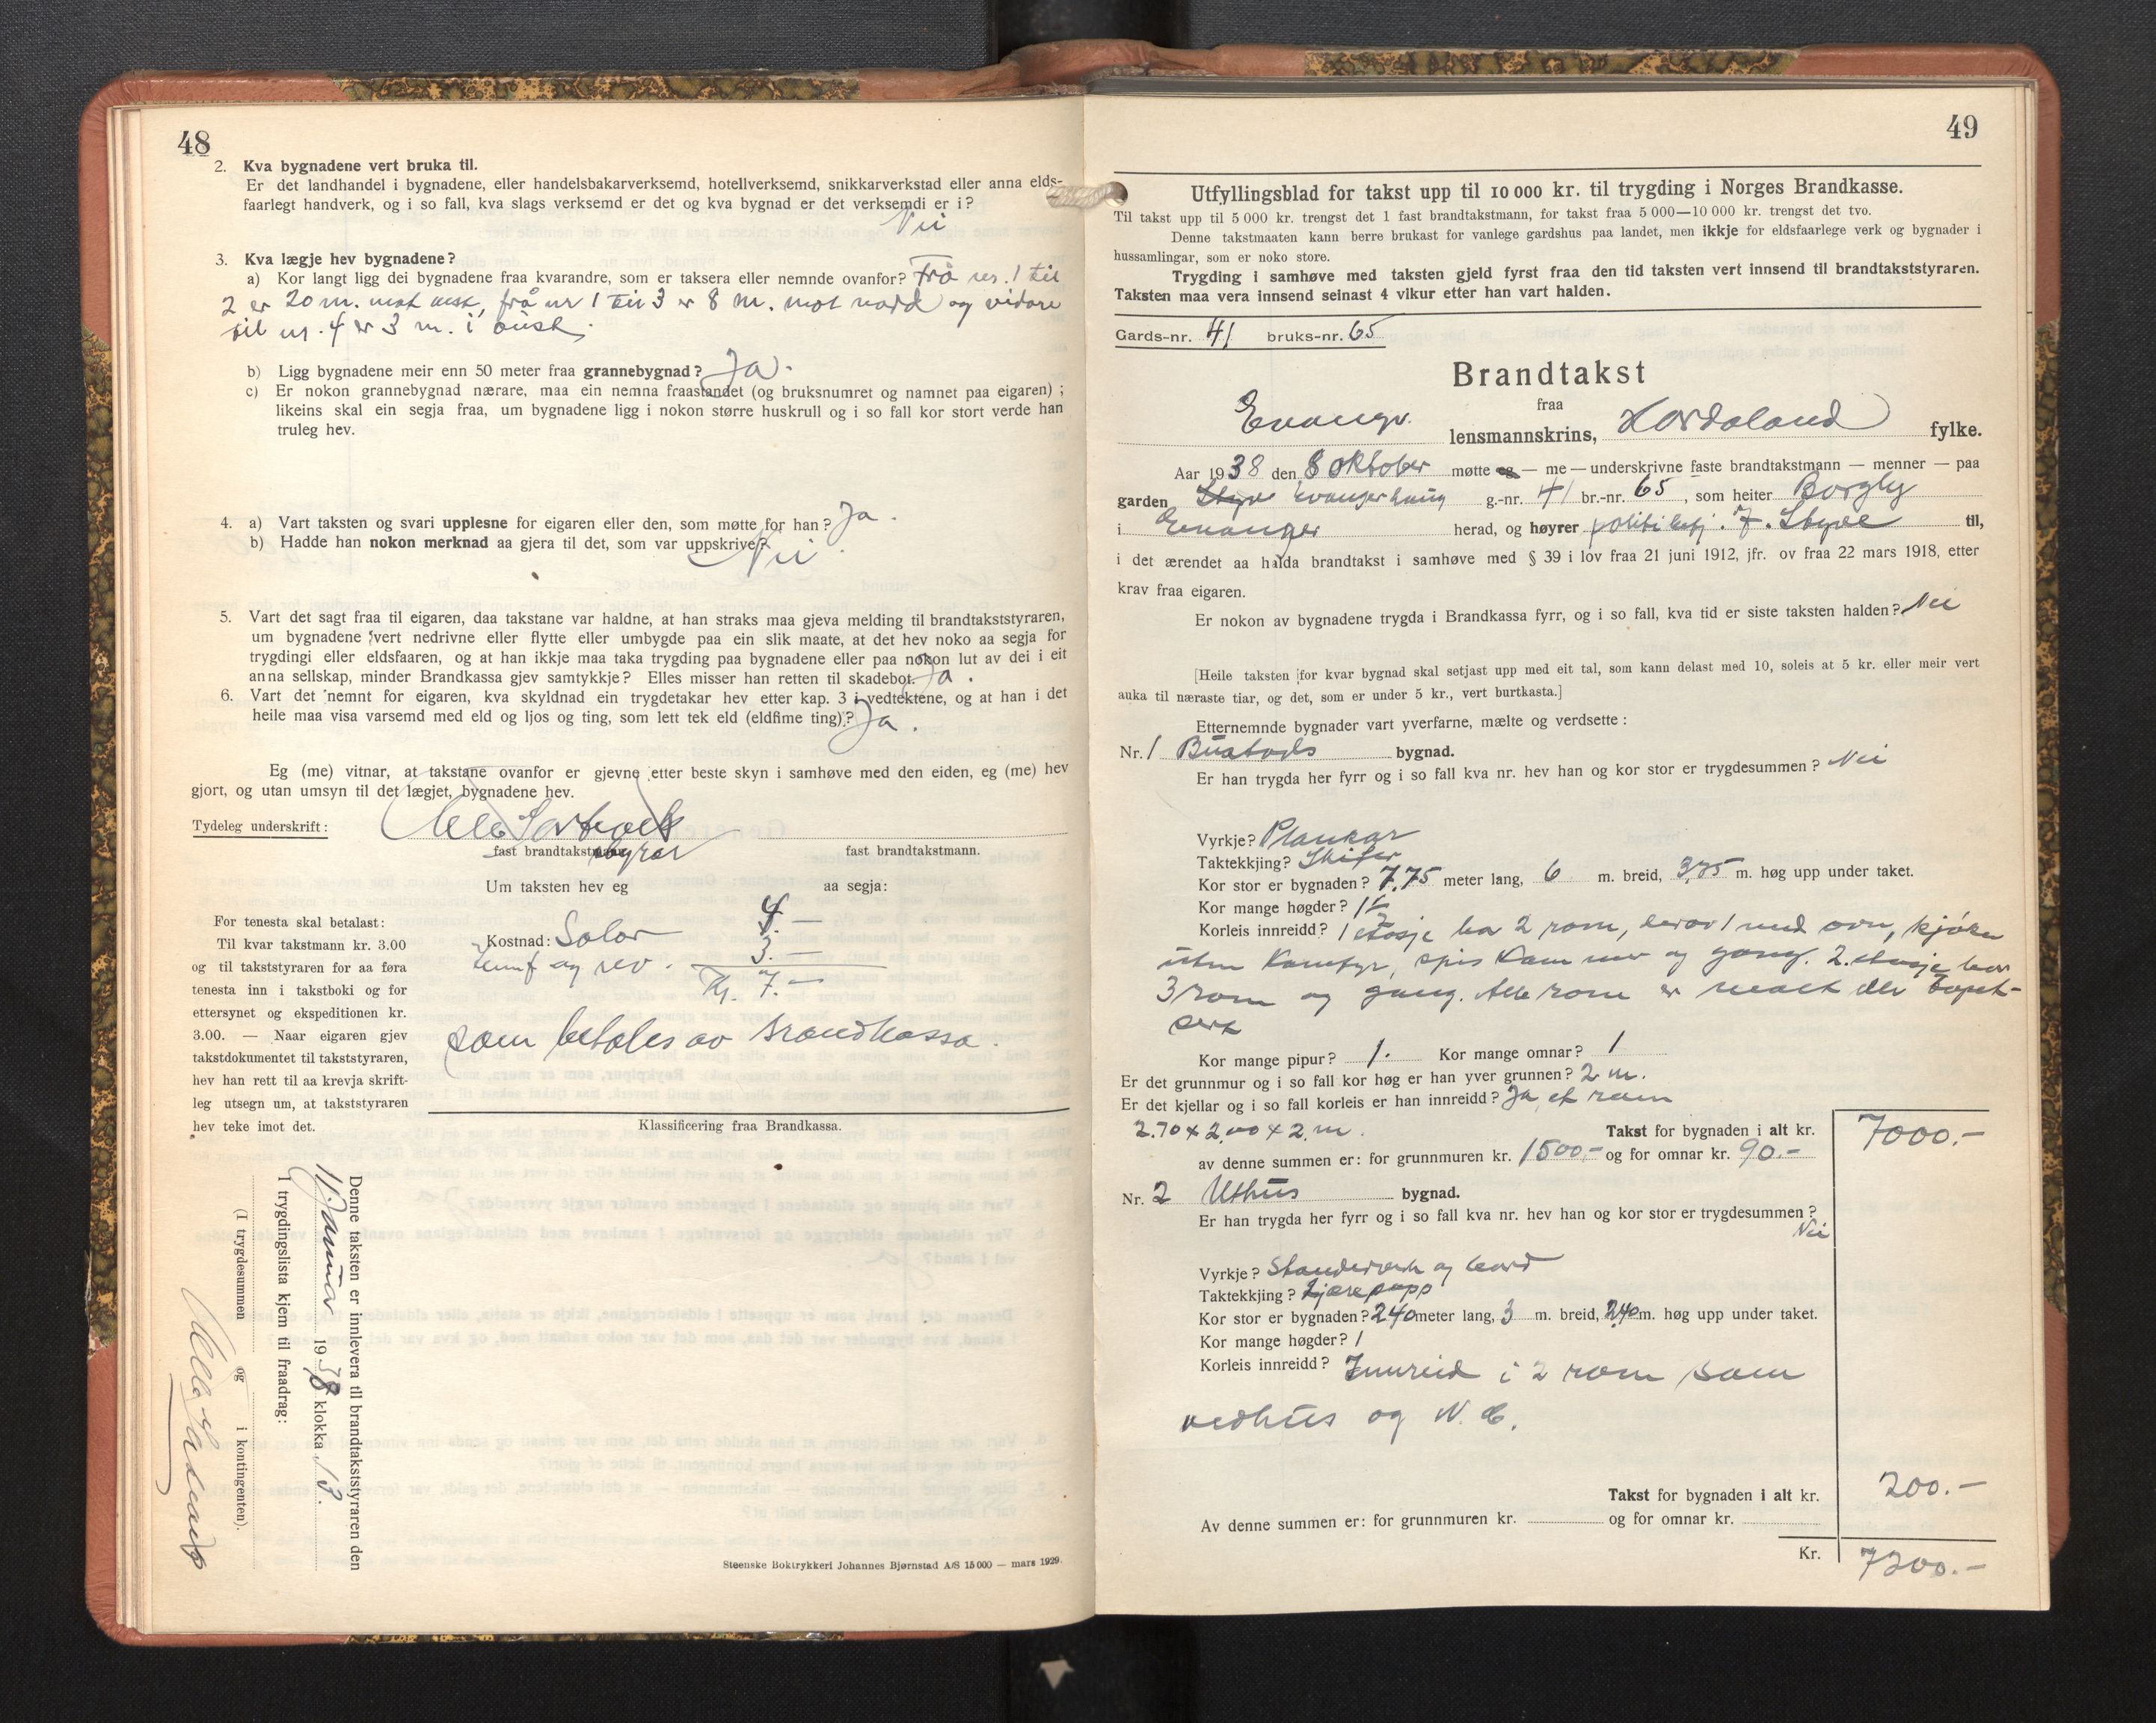 48
2. Kva bygnadene vert bruka til.
Er det landhandel i bygnadene, eller handelsbakarverksemd, hotellverksemd, snikkarverkstad eller anna elds-
faarlegt handverk, og i so fall, kva slags verksemd er det og kva bygnad er det verksemdi er i?
Nei
3. Kva lægje hev bygnadene?
a) Kor langt ligg dei bygnadene fraa kvarandre, som er taksera eller nemnde ovanfor? Frå nr. 1 til
2 er 20 m. mot aust, frå nr 1 til 3 er 8 m. mot nord og vidare
til nr. 4 er 3 m. i aust.
b) Ligg bygnadene meir enn 50 meter fraa grannebygnad? Ja.
c) Er nokon grannebygnad nærare, maa ein nemna fraastandet (og bruksnumret og namnet paa eigaren) ;
likeins skal ein segja fraa, um bygnadene ligg i nokon større huskrull og i so fall kor stort verde han
truleg hev.
4. a) Vart taksten og svari upplesne for eigaren eller den, som møtte for han? Ja.
b) Hadde han nokon merknad aa gjera til det, som var uppskrive? Nei
5. Vart det sagt fraa til eigaren, daa takstane var haldne, at han straks maa gjeva melding til brandtakststyraren,
um bygnadene vert nedrivne eller flytte eller umbygde paa ein slik maate, at det hev noko aa segja for
trygdingi eller eldsfaaren, og at han ikkje maa taka trygding paa bygnadene eller paa nokon lut av dei i eit
anna sellskap, minder Brandkassa gjev samtykkje? Elles misser han retten til skadebot. Ja.
6. Vart det nemnt for eigaren, kva skyldnad ein trygdetakar hev etter kap. 3 i vedtektene, og at han i det
heile maa visa varsemd med eld og ljos og ting, som lett tek eld (eldfime ting)? Ja.
Eg (me) vitnar, at takstane ovanfor er gjevne etter beste skyn i samhøve med den eiden, eg (me) hev
gjort, og utan umsyn til det lægjet, bygnadene hev.
Tydeleg underskrift:
fast brandtakstmann styrar fast brandtakstmann.
Um taksten hev eg aa segja:
For tenesta skal betalast:
Til kvar takstmann kr. 3.00
og til takststyraren for aa føra
tenesta inn i takstboki og for
ettersynet og ekspeditionen kr.
3.00. — Naar eigaren gjev
takstdokumentet til takststyraren,
hev han rett til aa krevja skrift-
leg utsegn um, at takststyraren
hev teke imot det.
Kostnad: 4.—
og rev. 3.—
Kr. 7.—
som betales av Brandkassa.
Klassificering fraa Brandkassa.
Denne taksten er innlevera til brandtakststyraren den
11 Januar 1938 klokka 13.
I trygdingslista kjem til fraadrag:
(I trygdesummen og i kontingenten).
Steenske Boktrykkeri Johannes Bjørnstad A/S 15 000 — mars 1929.
49
Utfyllingsblad for takst upp til 10 000 kr. til trygding i Norges Brandkasse.
Til takst upp til 5 000 kr. trengst det 1 fast brandtakstmann, for takst fraa 5 000—10 000 kr. trengst det tvo.
Denne takstmaaten kann berre brukast for vanlege gardshus paa landet, men ikkje for eldsfaarlege verk og bygnader i
hussamlingar, som er noko store.
Trygding i samhøve med taksten gjeld fyrst fraa den tid taksten vert innsend til brandtakststyraren.
Taksten maa vera innsend seinast 4 vikur etter han vart halden.
Gards-nr. 41 bruks-nr. 65
Brandtakst
fraa
Evanger lensmannskrins, Hordaland fylke.
Aar 1938 den 8 oktober møtte eg — me — underskrivne faste brandtakstmann — menner — paa
garden Styve Evangerhaug g.-nr. 41 br.-nr. 65, som heiter Borgly
i Evanger herad, og høyrer politibetj. J. Styve til,
i det ærendet aa halda brandtakst i samhøve med § 39 i lov fraa 21 juni 1912, jfr. ov fraa 22 mars 1918, etter
krav fraa eigaren.
Er nokon av bygnadene trygda i Brandkassa fyrr, og i so fall, kva tid er siste taksten halden? Nei
[Heile taksten for kvar bygnad skal setjast upp med eit tal, som kann delast med 10, soleis at 5 kr. eller meir vert
auka til næraste tiar, og det, som er under 5 kr., vert burtkasta.]
Etternemnde bygnader vart yverfarne, mælte og verdsette :
Nr. 1 Bustads bygnad.
Er han trygda her fyrr og i so fall kva nr. hev han og kor stor er trygdesummen? Nei
Vyrkje? Plankar
Taktekkjing? Skifer
Kor stor er bygnaden? 7,75 meter lang, 6 m. breid, 3,75 m. høg upp under taket.
Kor mange høgder?
Korleis innreidd? 1 etasje har 2 rom, herav 1 med ovn, kjøken
uten Komfyr, spis Kammer og gang. 2. etasje har
3 rom og gang. Alle rom er malt eller tapet-
sert
Kor mange pipur? 1. Kor mange omnar? 1
Er det grunnmur og i so fall kor høg er han yver grunnen? 2 m.
Er det kjellar og i so fall korleis er han innreidd? Ja, et rom
2.70 x 2,00 x 2 m.
Takst for bygnaden i alt kr. 7000.-
av denne summen er: for grunnmuren kr. 1500,- og for omnar kr. 90.-
Nr. 2 Uthus bygnad.
Er han trygda her fyrr og i so fall kva nr. hev han og kor stor er trygdesummen?
Nei
Vyrkje? Standerverk og bord
Taktekkjing? Tjærepapp
Kor stor er bygnaden? 240 meter lang, 3 m. breid, 2,40 m. høg upp under taket.
Kor mange høgder? 1
Korleis innreidd? Innreid i 2 rom som
vedhus og W. C.
Takst for bygnaden i alt kr. 200.-
Av denne summen er: for grunnmuren kr. og for omnar kr.
Kr. 7200.-